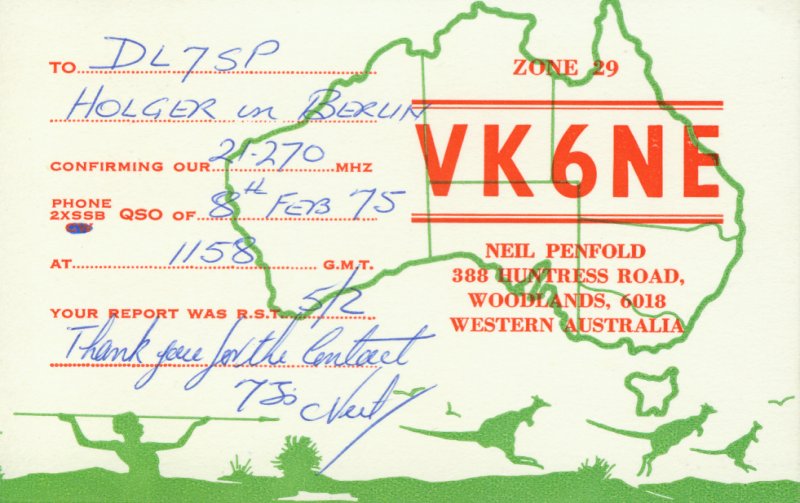 TO DL7SP
HOLGER in BERLIN
CONFIRMING OUR 21·270 MHZ
PHONE
2XSSB QSO OF 8TH FEB 75
AT 1158 G.M.T.
YOUR REPORT WAS R.S.T. 5/2
Thank you for the Contact
73s Neil
ZONE 29
VK6NE
NEIL PENFOLD
388 HUNTRESS ROAD,
WOODLANDS, 6018
WESTERN AUSTRALIA